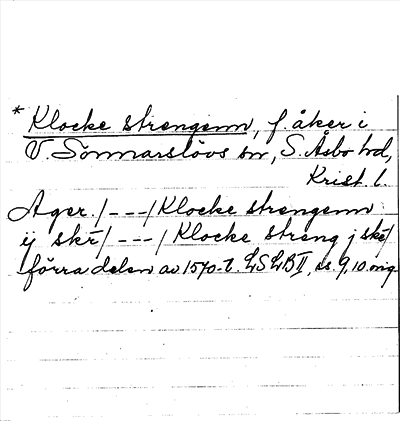 * Klocke strengenn, f. åker i
V. Sönnarslövs sn, S. Åsbo hd,
Krist. l.
Ager. /---/ Klocke strengenn
ij skr /---/ Klocke streng j skr/
förra delen av 1570-t. LSLB II, ss. 9, 10. orig.